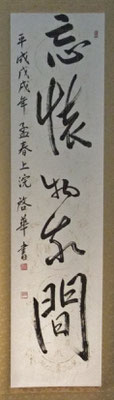 忘懐物我間
平成戊戌年孟春上浣啓華書